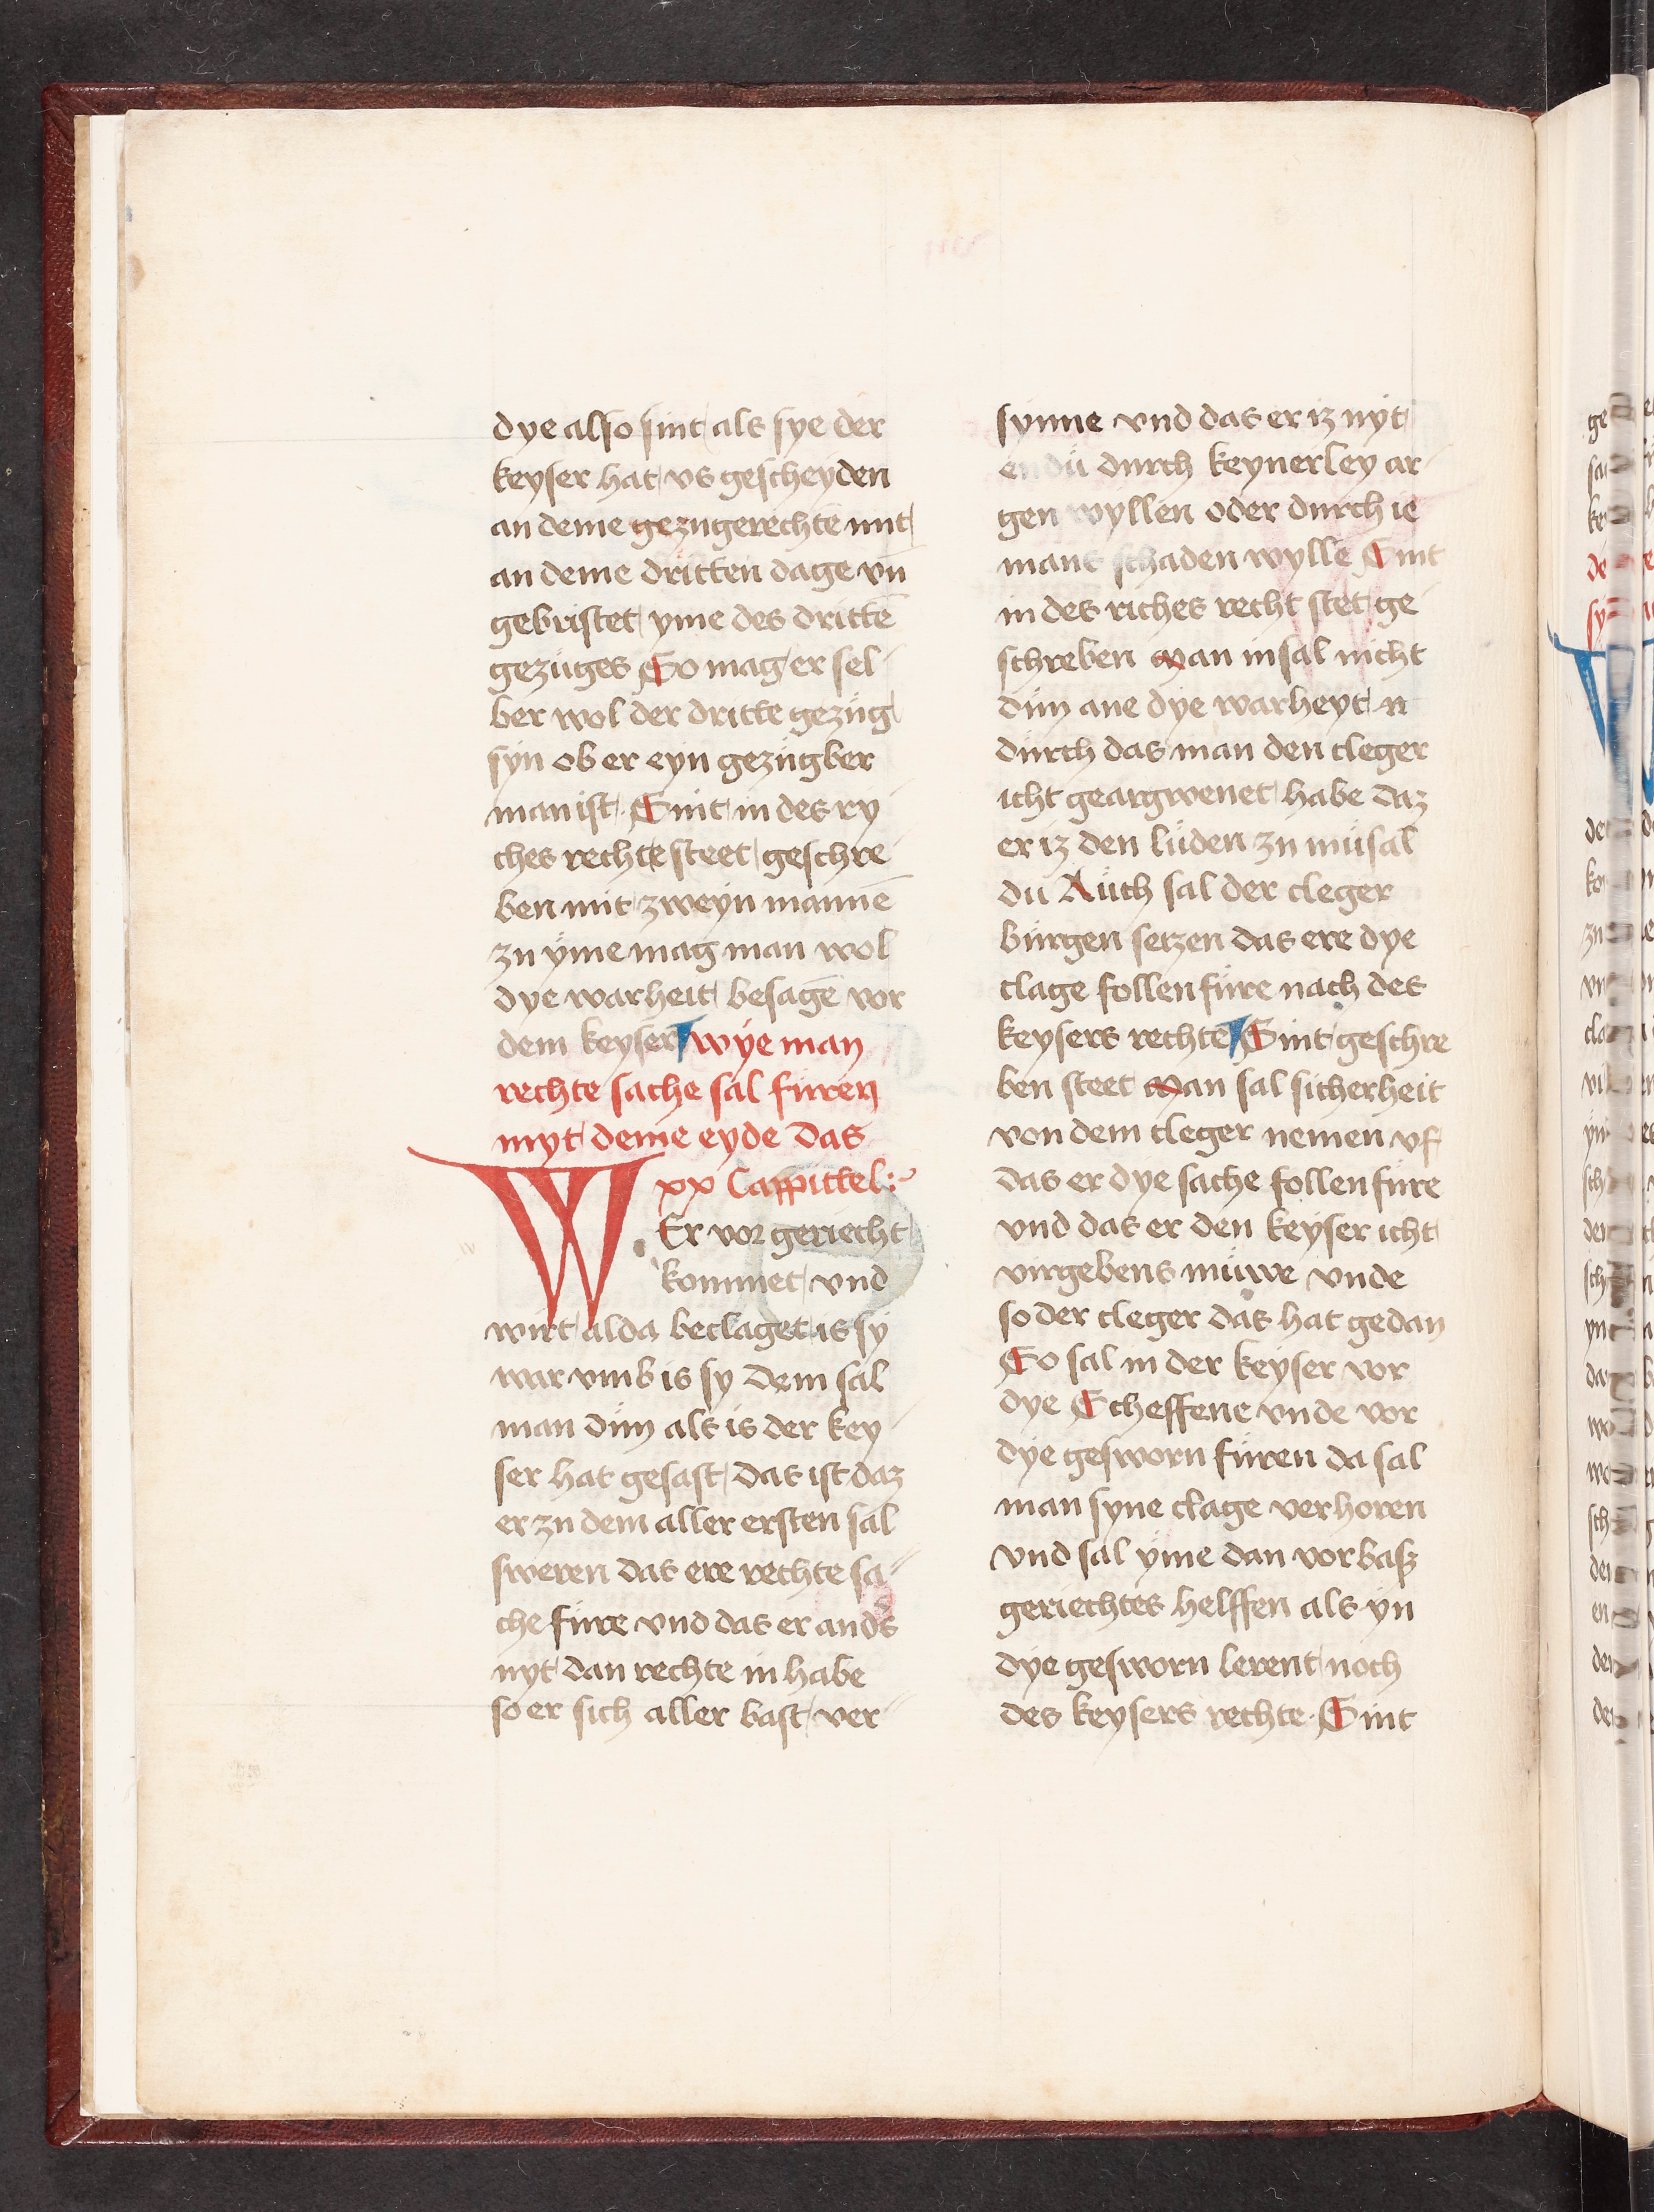 dye also sint als sye der
keyser hat vs gescheyden
an deme gezugerechte mit
an deme dritten dage vn̄
gebristet yme des drittē
gezuges So mag er sel
ber wol der dritte gezug
syn ob er eyn gezugber
man ist Sint in des ry
ches rechte steet geschre
ben mit zweyn mannē
zu yme mag man wol
dye warheit besagē vor
dem keyser wye man
rechte sache sal furen
myt deme eyde das
xx Cappittel
WEr vor geriecht
kommet vnd
wirt alda beclaget is sy
war vmb is sy dem sal
man dun als is der key
ser hat gesast das ist daz
er zu dem aller ersten sal
sweren das ere rechte sa
che fure vnd das er and̄s
nyt dan rechte in habe
so er sich aller bast ver
synne vnd das er iz nyt
endü durch keynerley ar
gen wyllen oder durch ie
mans schaden wylle Sint
in des riches recht stet ge
schreben Man insal nicht
dun ane dye warheyt
durch das man den cleger
icht geargwenet habe daz
er iz den lüden zu müsal
du Auch sal der cleger
burgen setzen das ere dye
clage follenfure nach des
keysers rechte Sint geschre
ben steet Man sal sicherheit
von dem cleger nemen vf
das er dye sache follenfure
vnd das er den keyser icht
virgebens müwe vnde
so der cleger das hat gedan
So sal in der keyser vor
dye Scheffene vnde vor
dye gesworn furen da sal
man syne clage verhoren
vnd sal yme dan vorbasz
geriechtes helffen als yn
dye gesworn lerent noch
des keysers rechte Sint